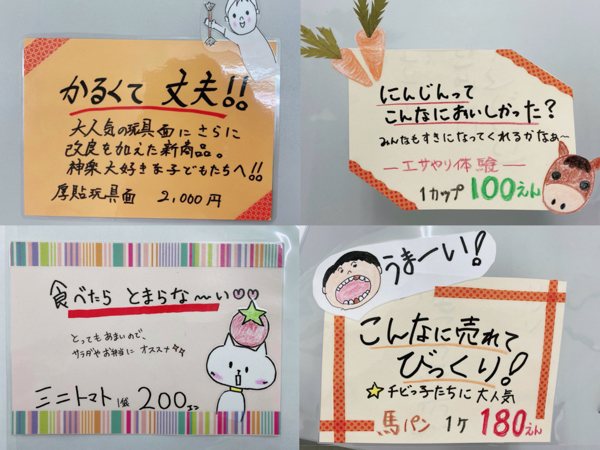 かるくて 丈夫!!
大人気の玩具面にさらに
改良を加えた新商品。
神楽大好きな子どもたちへ!!
厚貼玩具面 2,000円
にんじんって
こんなにおいしかった?
みんなもすきになってくれるかなぁ〜
―エサやり体験―
1カップ 100えん
食べたら とまらな〜い♡♡
とってもあまいので、
サラダやお弁当に オススメ☆☆
ミニトマト 1袋 200エン
うまーい!
こんなに売れて
びっくり!
☆チビっ子たちに大人気
馬パン 1ケ 180えん